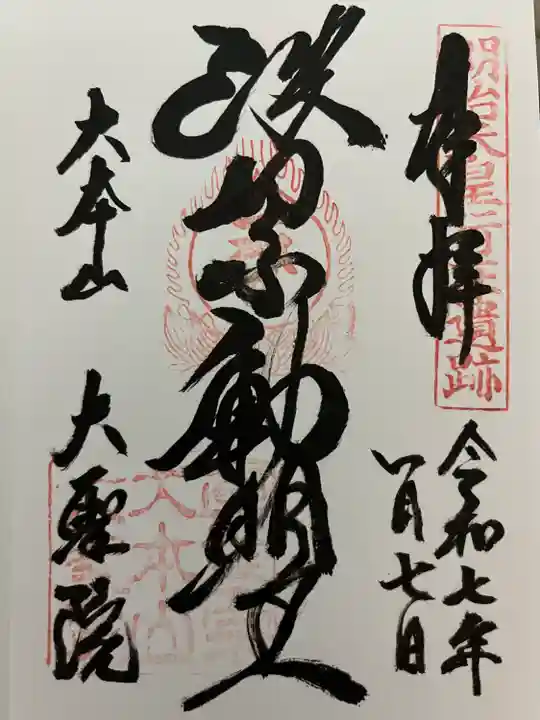 明治天皇行幸遺跡
奉拝
令和七年
八月七日
波切不動明王
大本山
大聖院
大本山